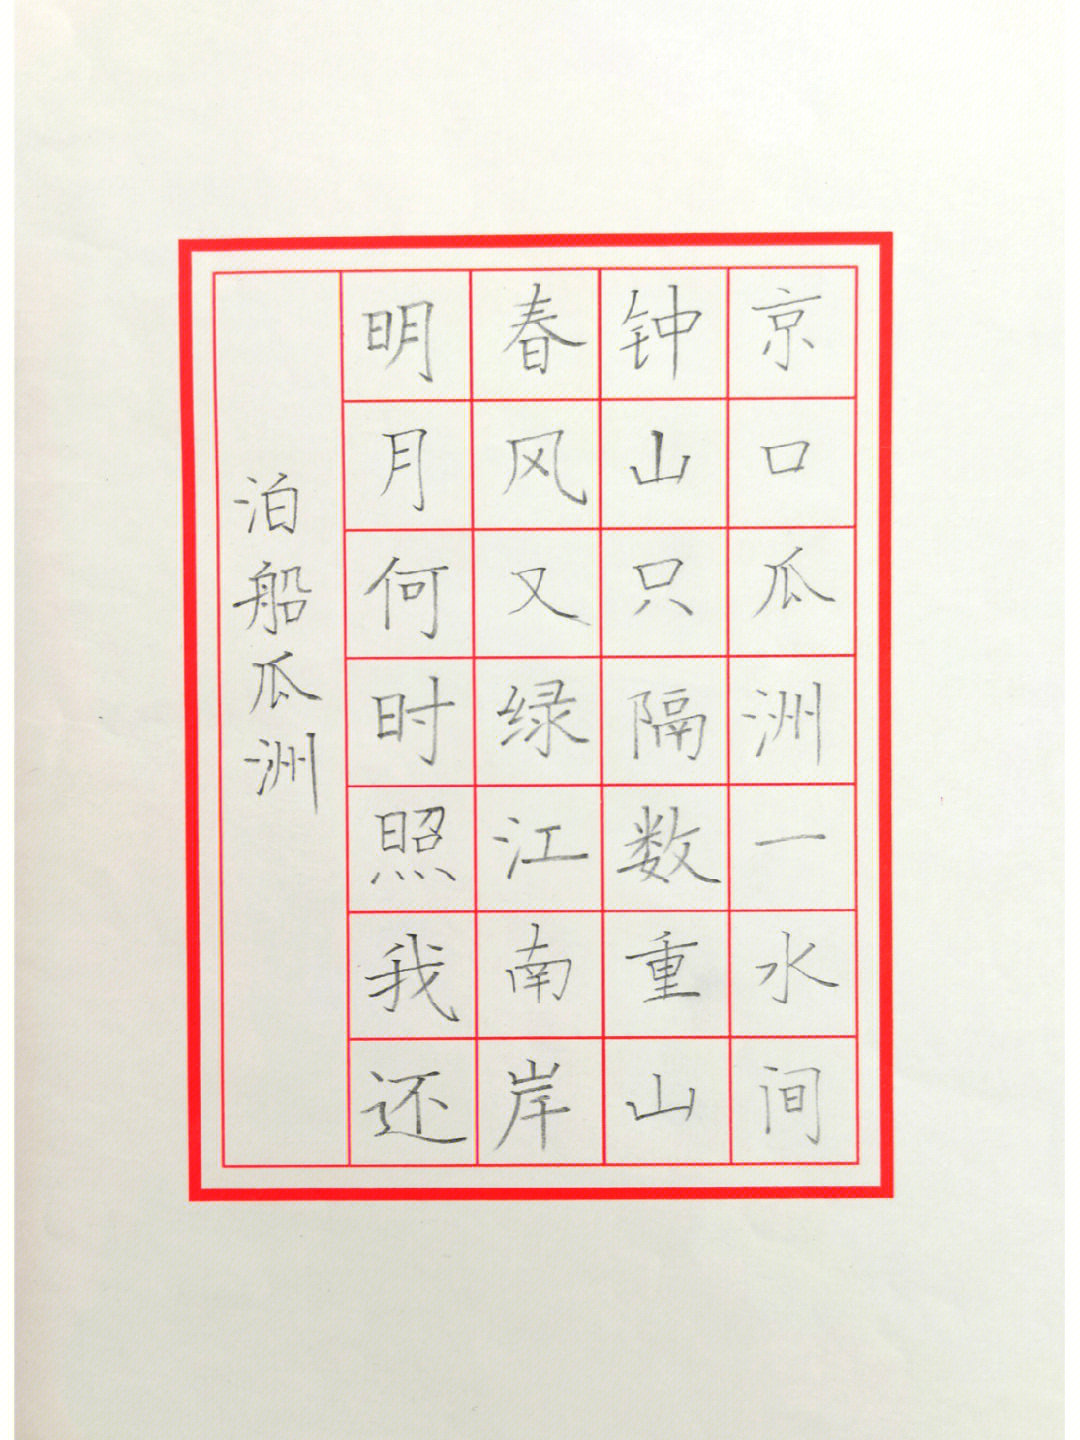 京口瓜洲一水间
钟山只隔数重山
春风又绿江南岸
明月何时照我还
泊船瓜洲